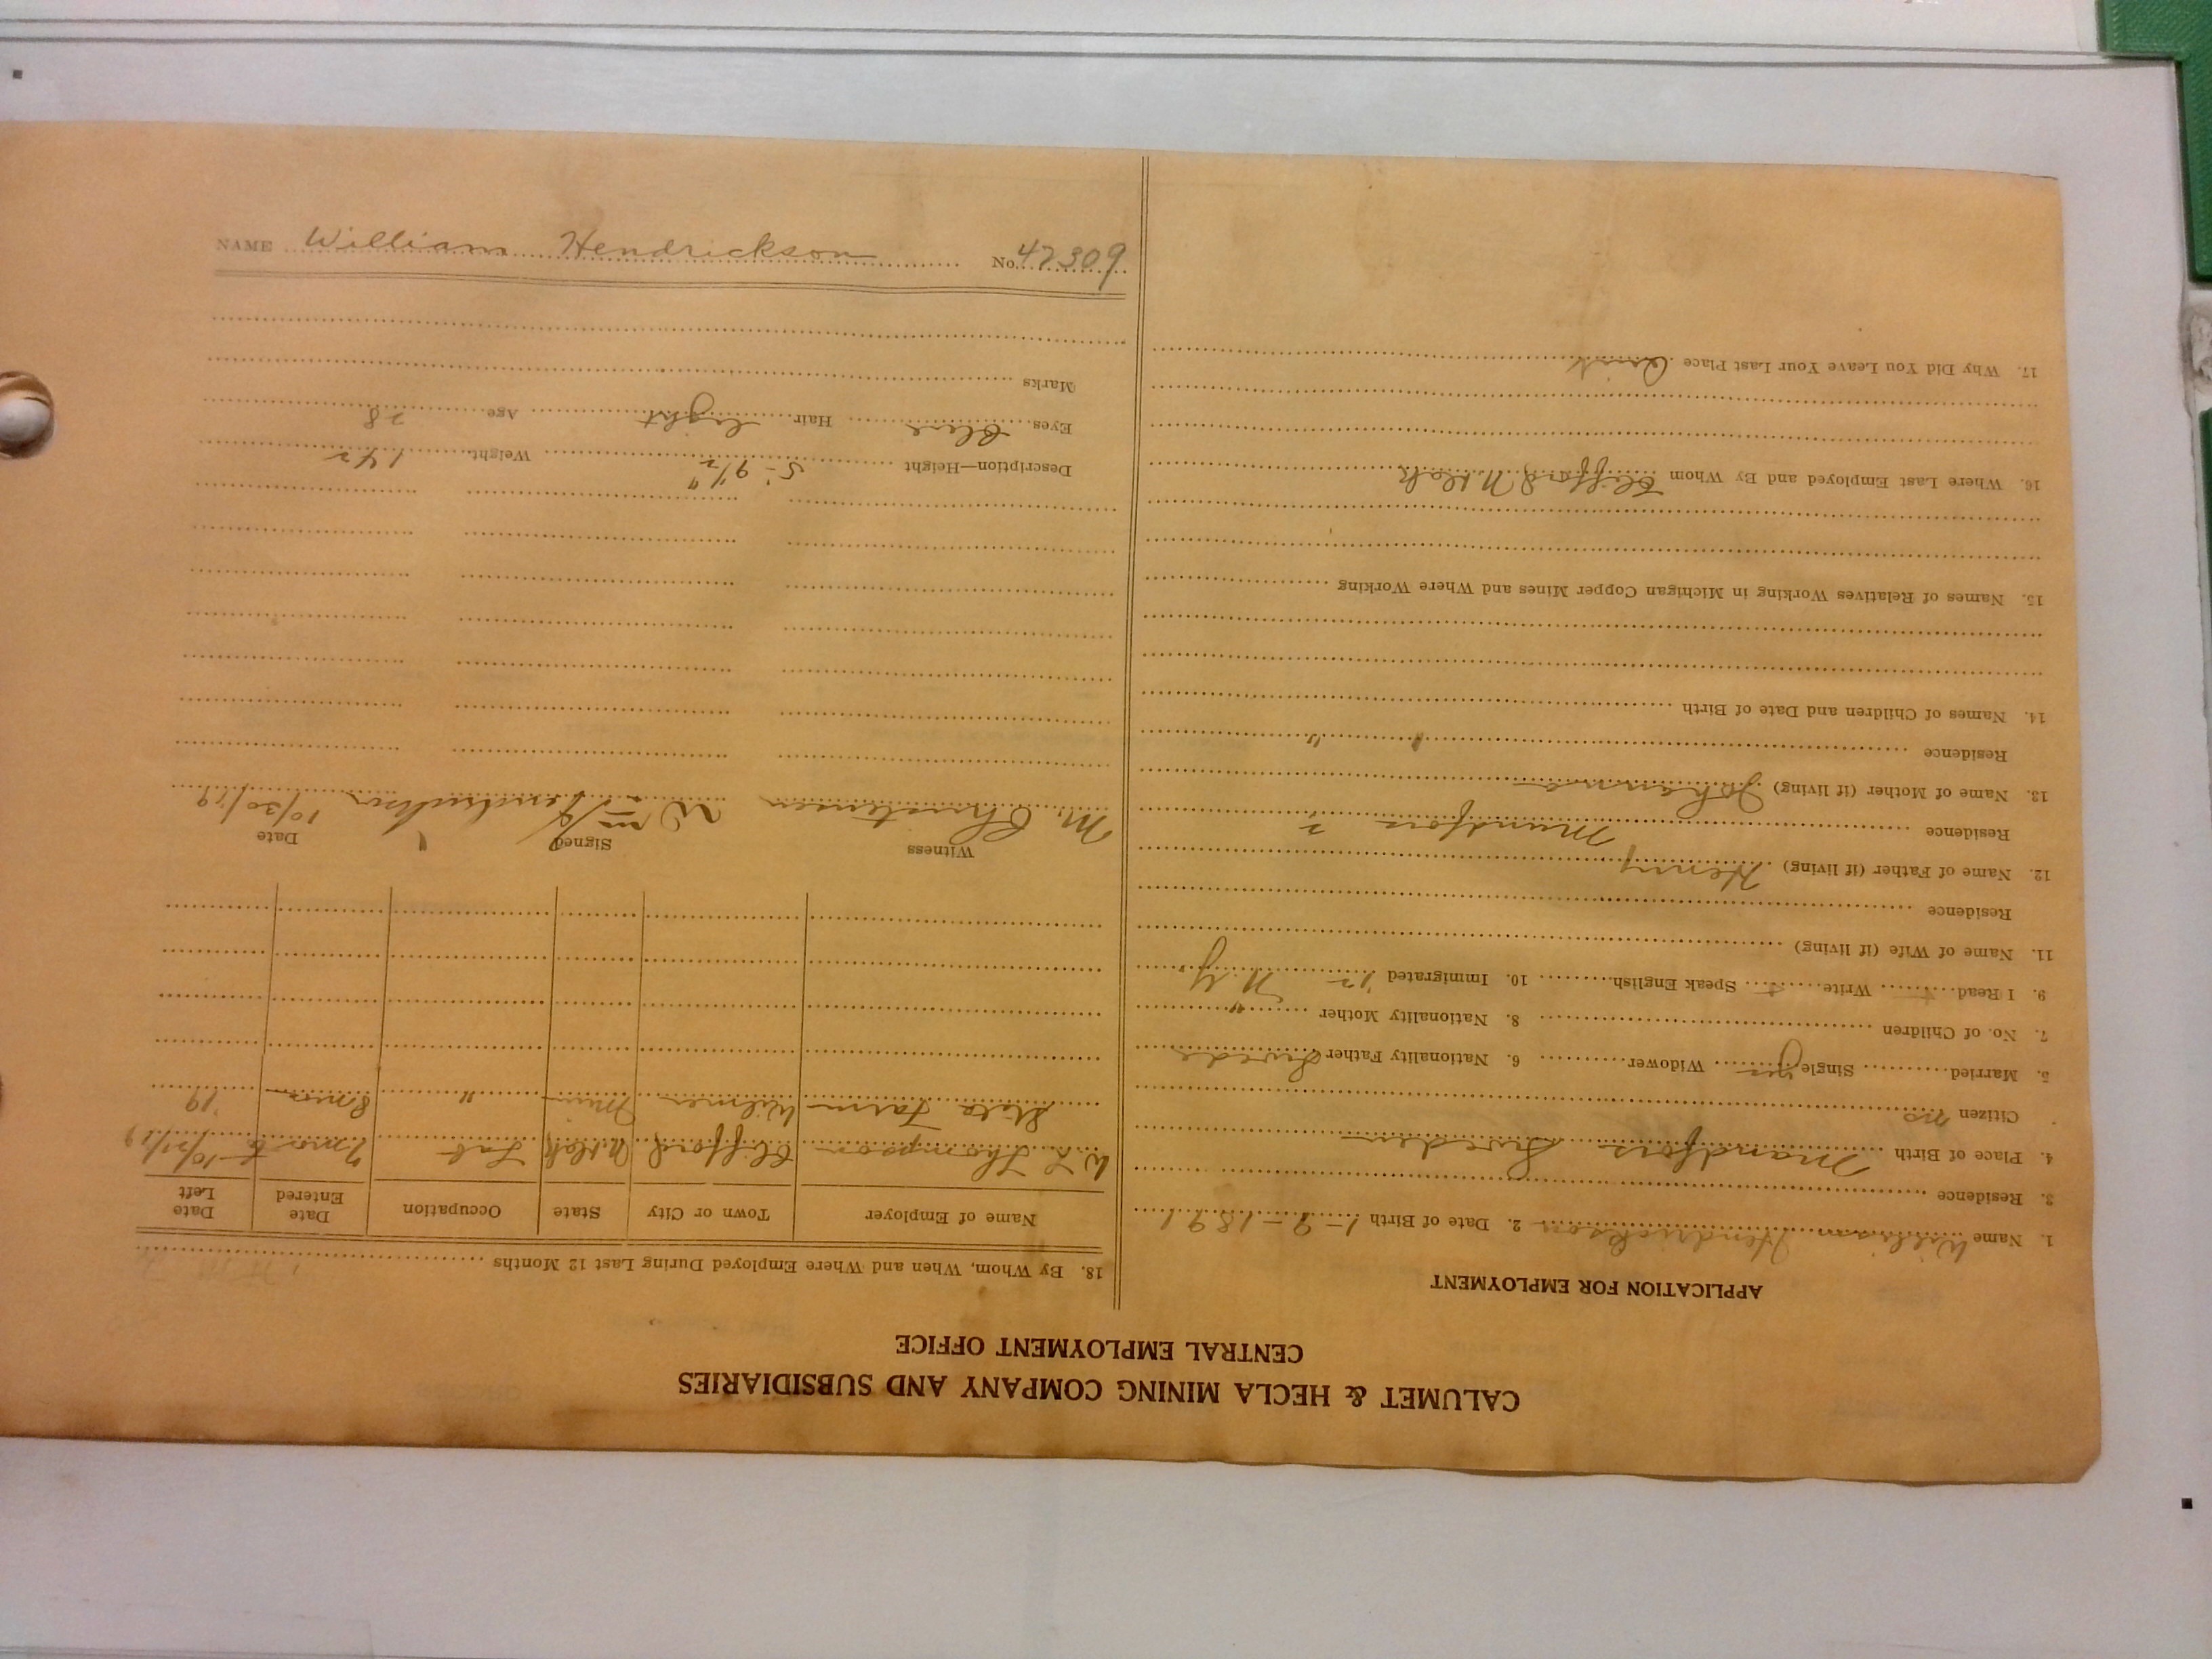 CALUMET & HECLA MINING COMPANY AND SUBSIDIARIES
CENTRAL EMPLOYMENT OFFICE
APPLICATION FOR EMPLOYMENT
1. Name William Hendrickson 2. Date of Birth 1-9-1891
3. Residence
4. Place of Birth Mandfors Sweden
Citizen no
5. Married Single yes Widower 6. Nationality Father Swede
7. No. of Children 8. Nationality Mother "
9. I Read Write Speak English 10. Immigrated '12 N.Y.
11. Name of Wife (if living)
Residence
12. Name of Father (if living) Henry
Residence Mundfors
13. Name of Mother (if living) Johanna
Residence " "
14. Names of Children and Date of Birth
15. Names of Relatives Working in Michigan Copper Mines and Where Working
16. Where Last Employed and By Whom Clifford N. Dak
17. Why Did You Leave Your Last Place Quit
18. By Whom, When and Where Employed During Last 12 Months
Name of Employer Town or City State Occupation Date Entered Date Left
W L Thompson Clifford N.Dak Lab 10/21/19
State Farm Wilmer Min " 8 mos '19
Witness Signed Date
M. Christensen Wm Hendrickson 10/30/19
Description—Height 5'-9 1/2" Weight 142
Eyes Blue Hair light Age 28
Marks
NAME William Hendrickson No. 42309